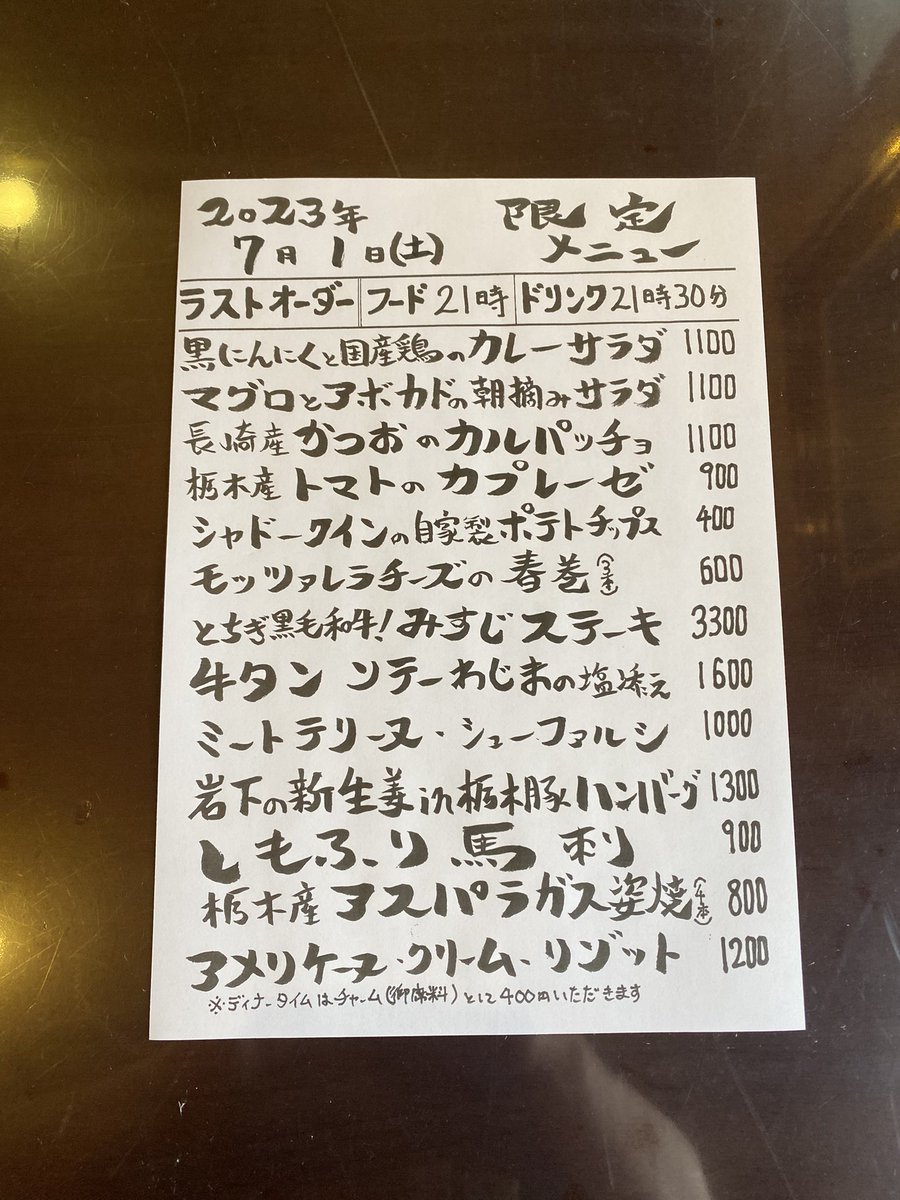 2023年 限定
7月1日(土) メニュー
ラストオーダー フード21時 ドリンク21時30分
黒にんにくと国産鶏のカレーサラダ 1100
マグロとアボカドの朝摘みサラダ 1100
長崎産かつおのカルパッチョ 1100
栃木産トマトのカプレーゼ 900
シャドークインの自家製ポテトチップス 400
モッツァレラチーズの春巻(3本) 600
とちぎ黒毛和牛!みすじステーキ 3300
牛タンソテーわじまの塩添え 1600
ミートテリーヌ・シューファルシ 1000
岩下の新生姜in栃木豚ハンバーグ 1300
しもふり馬刺 900
栃木産アスパラガス姿焼(4本) 800
アメリケーヌ・クリーム・リゾット 1200
※ディナータイムはチャーム(御席料)として400円いただきます